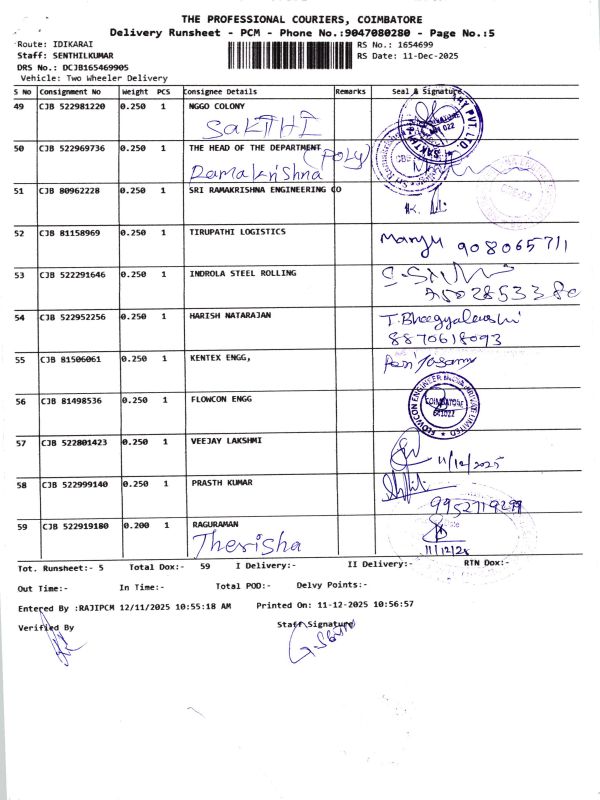 THE PROFESSIONAL COURIERS, COIMBATORE
Delivery Runsheet - PCM - Phone No.:9047080280 - Page No.:5
Route: IDIKARAI RS No.: 1654699
Staff: SENTHILKUMAR RS Date: 11-Dec-2025
DRS No.: DCJB165469905
Vehicle: Two Wheeler Delivery
S No Consignment No Weight PCS Consignee Details Remarks Seal & Signature
49 CJB 522981220 0.250 1 NGGO COLONY
SAKTHI
50 CJB 522969736 0.250 1 THE HEAD OF THE DEPARTMENT
(POLY)
Ramakrishna
51 CJB 80962228 0.250 1 SRI RAMAKRISHNA ENGINEERING CO
52 CJB 81158969 0.250 1 TIRUPATHI LOGISTICS
Manju 908065711
53 CJB 522291646 0.250 1 INDROLA STEEL ROLLING
54 CJB 522952256 0.250 1 HARISH NATARAJAN
8870618093
55 CJB 81506061 0.250 1 KENTEX ENGG,
56 CJB 81498536 0.250 1 FLOWCON ENGG
COIMBATORE
641022
57 CJB 522801423 0.250 1 VEEJAY LAKSHMI
11/12/2025
58 CJB 522999140 0.250 1 PRASTH KUMAR
9952719299
59 CJB 522919180 0.200 1 RAGURAMAN
Therisha
11/12/25
Tot. Runsheet:- 5 Total Dox:- 59 I Delivery:- II Delivery:- RTN Dox:-
Out Time:- In Time:- Total POD:- Delvy Points:-
Entered By :RAJIPCM 12/11/2025 10:55:18 AM Printed On: 11-12-2025 10:56:57
Verified By Staff Signature